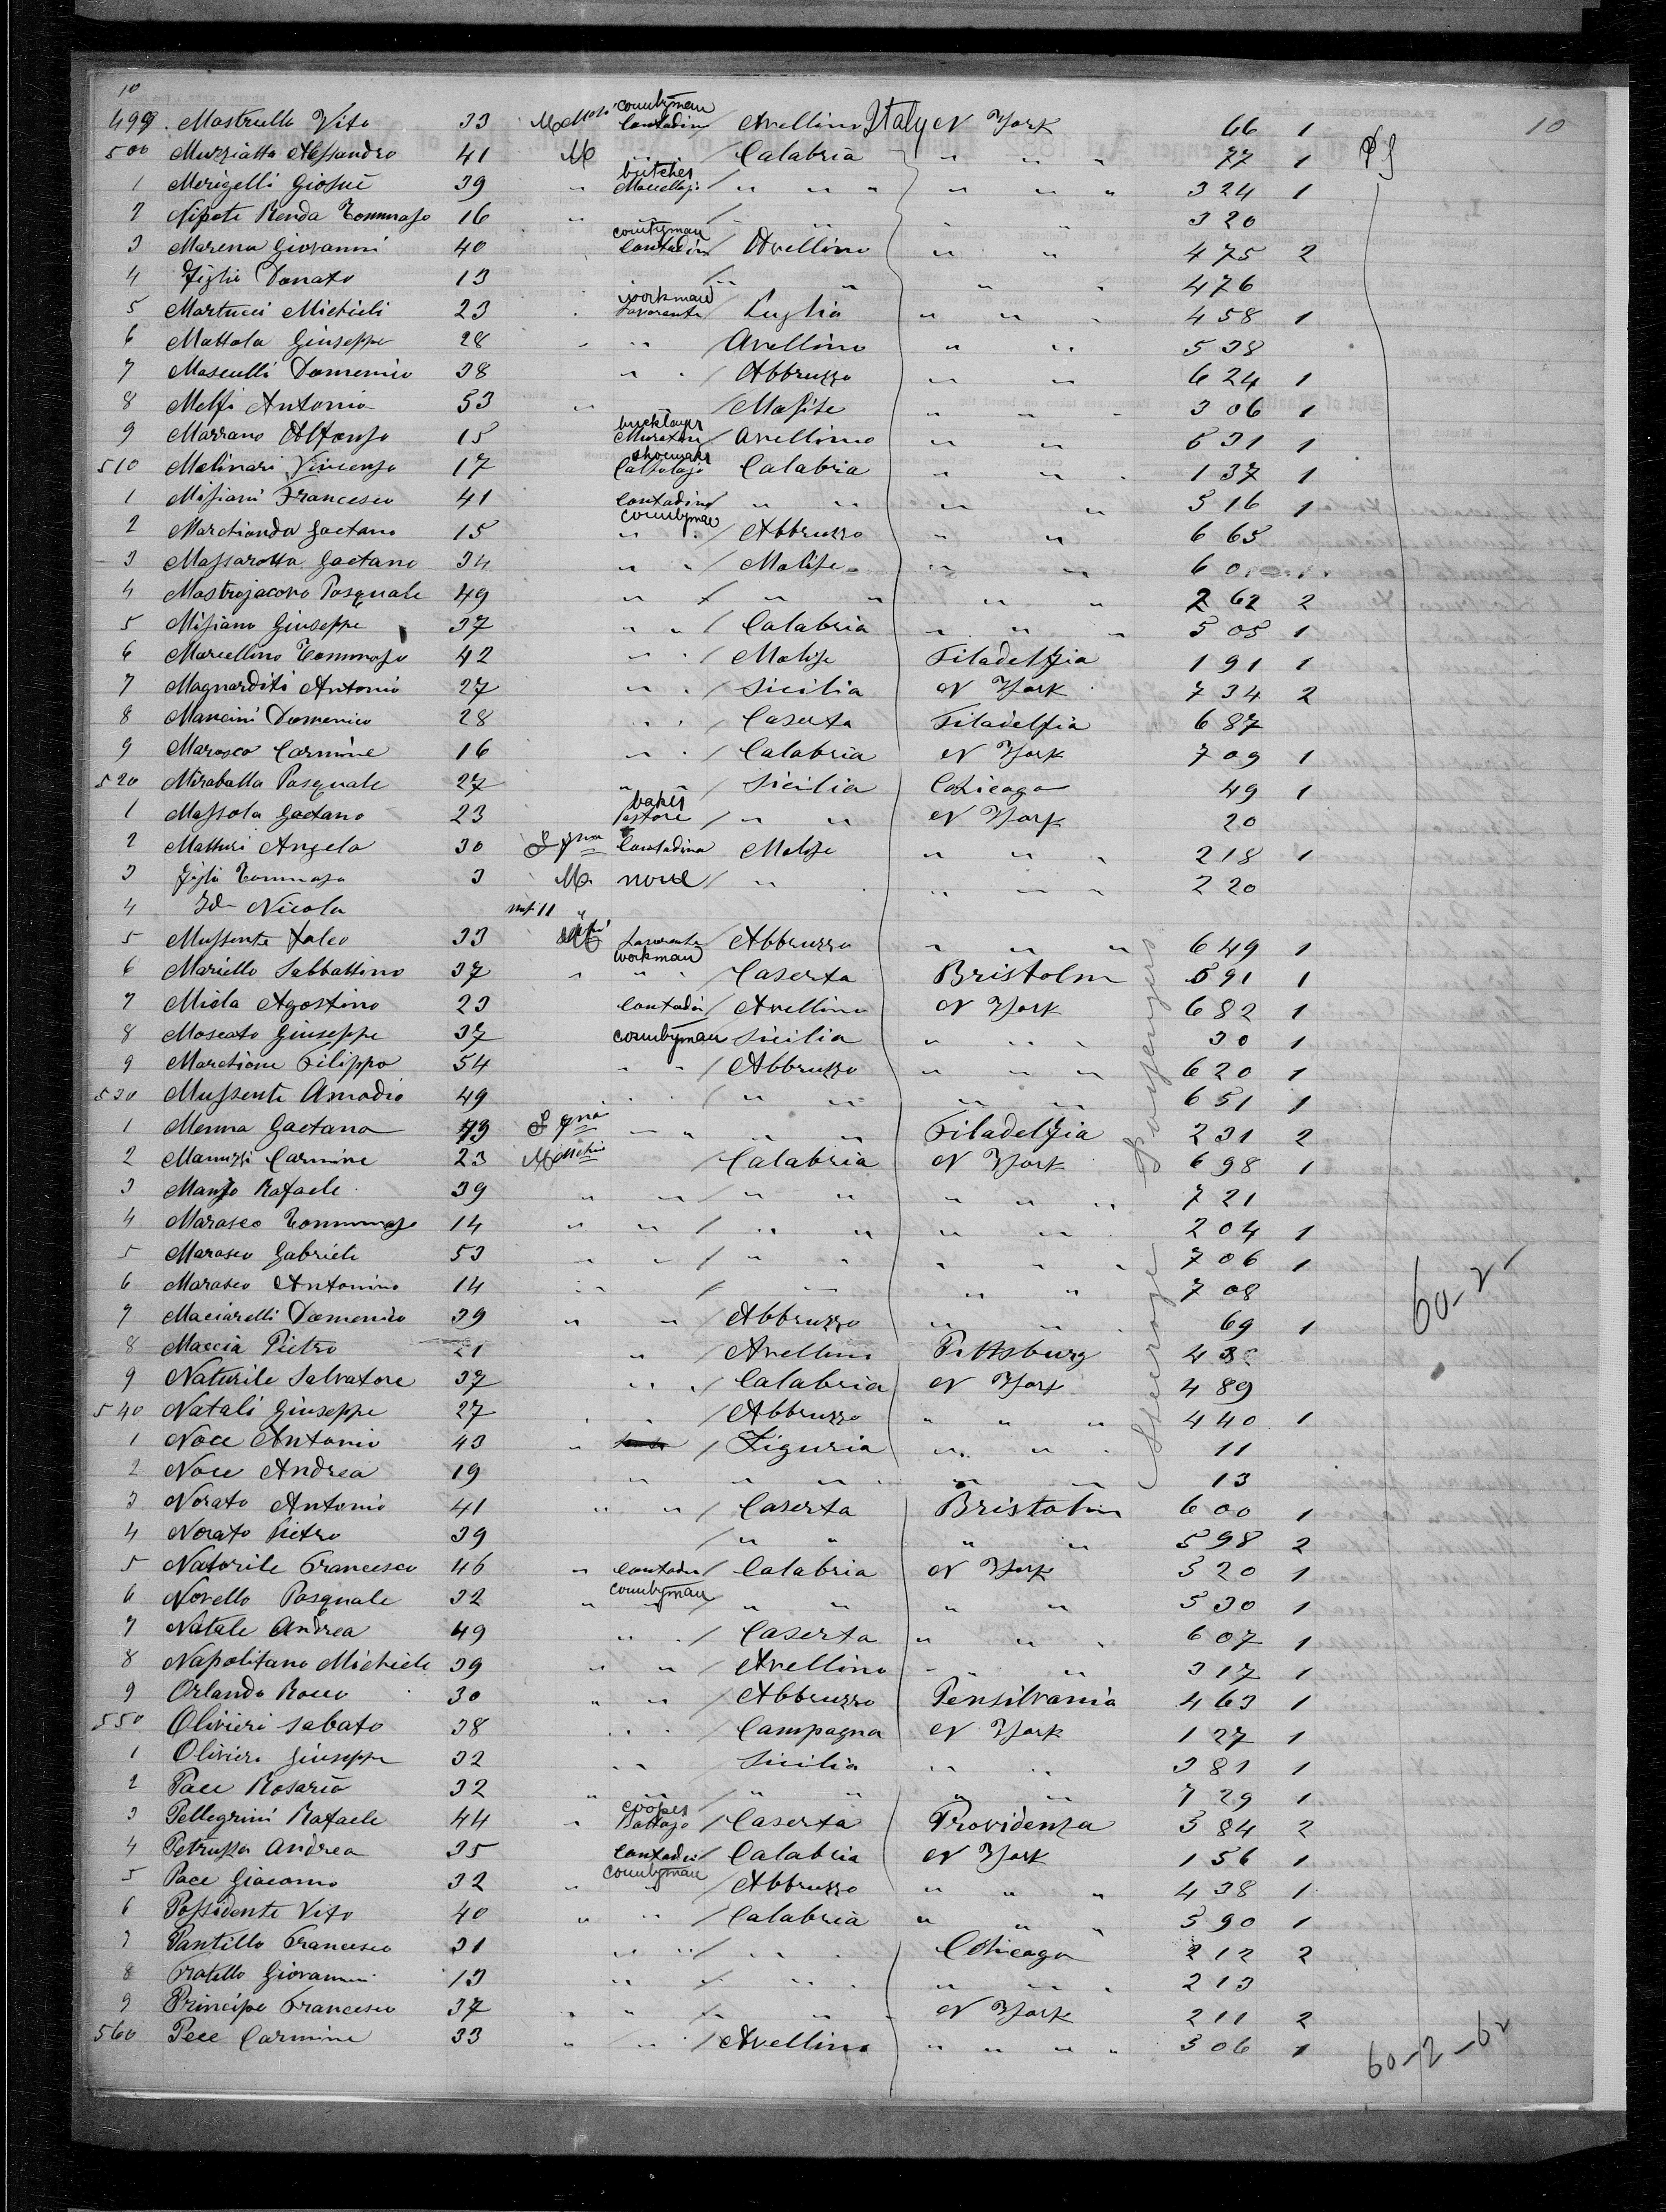 10
499. Mastrullo Vito 33 M Maschi countryman Contadino Avellino Italy N York 66 1 10
500 Muzziatta Alessandro 41 M " " Calabria " " " 77 1
1 Merigelli Giosuè 39 " butcher Macellajo " " " " " " 324 1
2 Nipote Renda Tommaso 16 " " " " 320
3 Marena Giovanni 40 countryman Contadin Avellino " " 475 2
4 Figlio Donato 13 " " " " 476
5 Martucci Michieli 23 workman Lavorante Puglia " " " 458 1
6 Mattola Giuseppe 28 " " Avellino " " 538
7 Masculli Domenico 38 " " Abbruzzo " " 624 1
8 Melfi Antonio 53 " Molise " " " 306 1
9 Marrano Alfonso 15 bricklayer Muratore Avellino " " 631 1
510 Molinari Vincenzo 17 shoemaker Calzolajo Calabria " " " 137 1
1 Misiani Francesco 41 Contadino countryman " " " " 516 1
2 Marchionda Gaetano 15 " " Abbruzzo " " 665
3 Massarotta Gaetano 34 " " Molise " " 60
4 Mastrojacovo Pasquale 49 " " " " " 262 2
5 Misiano Giuseppe 37 " " Calabria " " " 505 1
6 Marcellino Tommaso 42 " " Molise Filadelfia 191 1
7 Magnarditi Antonio 27 " " Sicilia N York 734 2
8 Mancini Domenico 28 " " Caserta Filadelfia 687
9 Marasco Carmine 16 " " Calabria N York 709 1
520 Miraballa Pasquale 27 " " Sicilia Chicago 49 1
1 Massola Gaetano 23 baker " " N York 20
2 Matturi Angela 30 Contadina Molise " " " 218 1
3 Figlio Tommaso 3 M none " " " " 220
4 Id Nicola 11 "
5 Mussente Falco 33 Lavorante workman Abbruzzo " " " 649 1
6 Mariello Sabbattino 37 " " " Caserta Bristolm 591 1
7 Miola Agostino 23 Contadin Avellino N York 682 1
8 Moscato Giuseppe 37 countryman Sicilia " " " 30 1
9 Marchione Filippo 54 " " Abbruzzo " " " 620 1
530 Mussente Amodio 49 " " " " " " 651 1
1 Menna Gaetana 43 " " " " Filadelfia 231 2
2 Manuzzi Carmine 23 M Maschi Calabria N York 698 1
3 Manzo Rafaele 39 " " " " " " " 721
4 Marasco Tommaso 14 " " " " " " 204 1
5 Marasco Gabriele 53 " " " " " " " 706 1
6 Marasco Antonino 14 " " " " 708
7 Maciarelli Domenico 39 " " Abbruzzo " " " 69 1
8 Maccia Pietro 21 " Avellino Pittsburg 43
9 Naturile Salvatore 37 " " Calabria N York 489
540 Natali Giuseppe 27 " " Abbruzzo " " " 440 1
1 Noce Antonio 43 " Liguria " " " 11
2 Noce Andrea 19 " " " " " 13
3 Norato Antonio 41 " " Caserta Bristolm 600 1
4 Norato Pietro 39 " " " " 598 2
5 Natorile Francesco 46 " Contadin Calabria N York 520 1
6 Novello Pasquale 32 " countryman " " " " 530 1
7 Natale Andrea 49 " " Caserta " " " 607 1
8 Napolitano Michiele 39 " " Avellino " " " 317 1
9 Orlando Rocco 30 " " Abbruzzo Pensilvania 463 1
550 Olivieri Sabato 38 " " Campagna N York 127 1
1 Olivieri Giuseppe 32 " " Sicilia " " " 381 1
2 Pace Rosario 32 " " " " " " 729 1
3 Pellegrini Rafaele 44 " cooper Bottajo Caserta Providenza 384 2
4 Petrussa Andrea 35 Contadin Calabria N York 156 1
5 Pace Giacomo 32 " countryman " Abbruzzo " " " 438 1
6 Possidente Vito 40 " " Calabria " " " 590 1
7 Pantillo Francesco 31 " " " " Chicago 212 2
8 Fratello Giovanni 13 " " " " " " 213
9 Principe Francesco 37 " " " " N York 211 2
560 Pece Carmine 33 " " Avellino " " " " 306 1
Steerage Passengers
60-2-
60-2-62